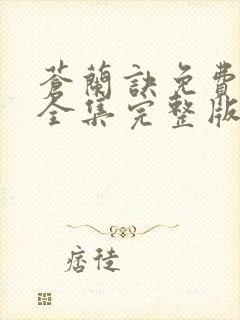 蒼蘭訣免費
全集完整版
痞徒